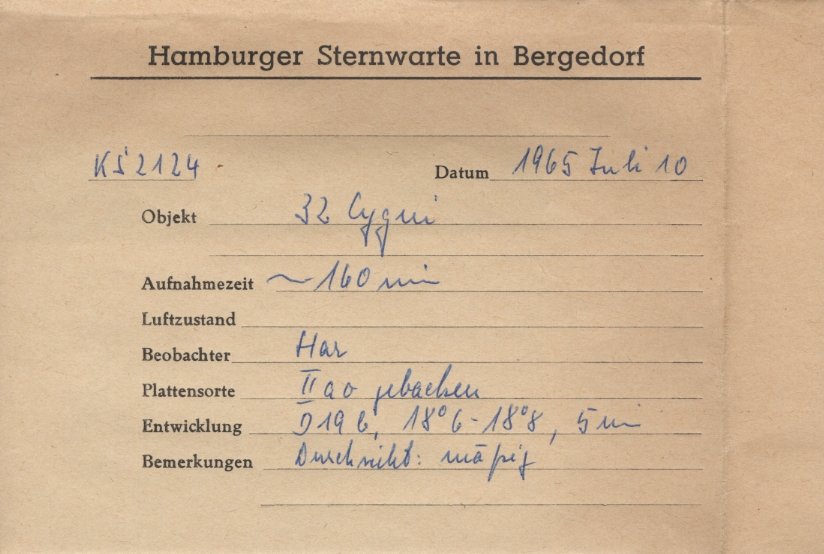 Hamburger Sternwarte in Bergedorf
KS 2124 Datum 1965 Juli 10
Objekt 32 Cygni
Aufnahmezeit ~ 160 min
Luftzustand
Beobachter Har
Plattensorte IIa0 gebacken
Entwicklung D19b, 18°6-18°8, 5 min
Bemerkungen Durchsicht: mäßig